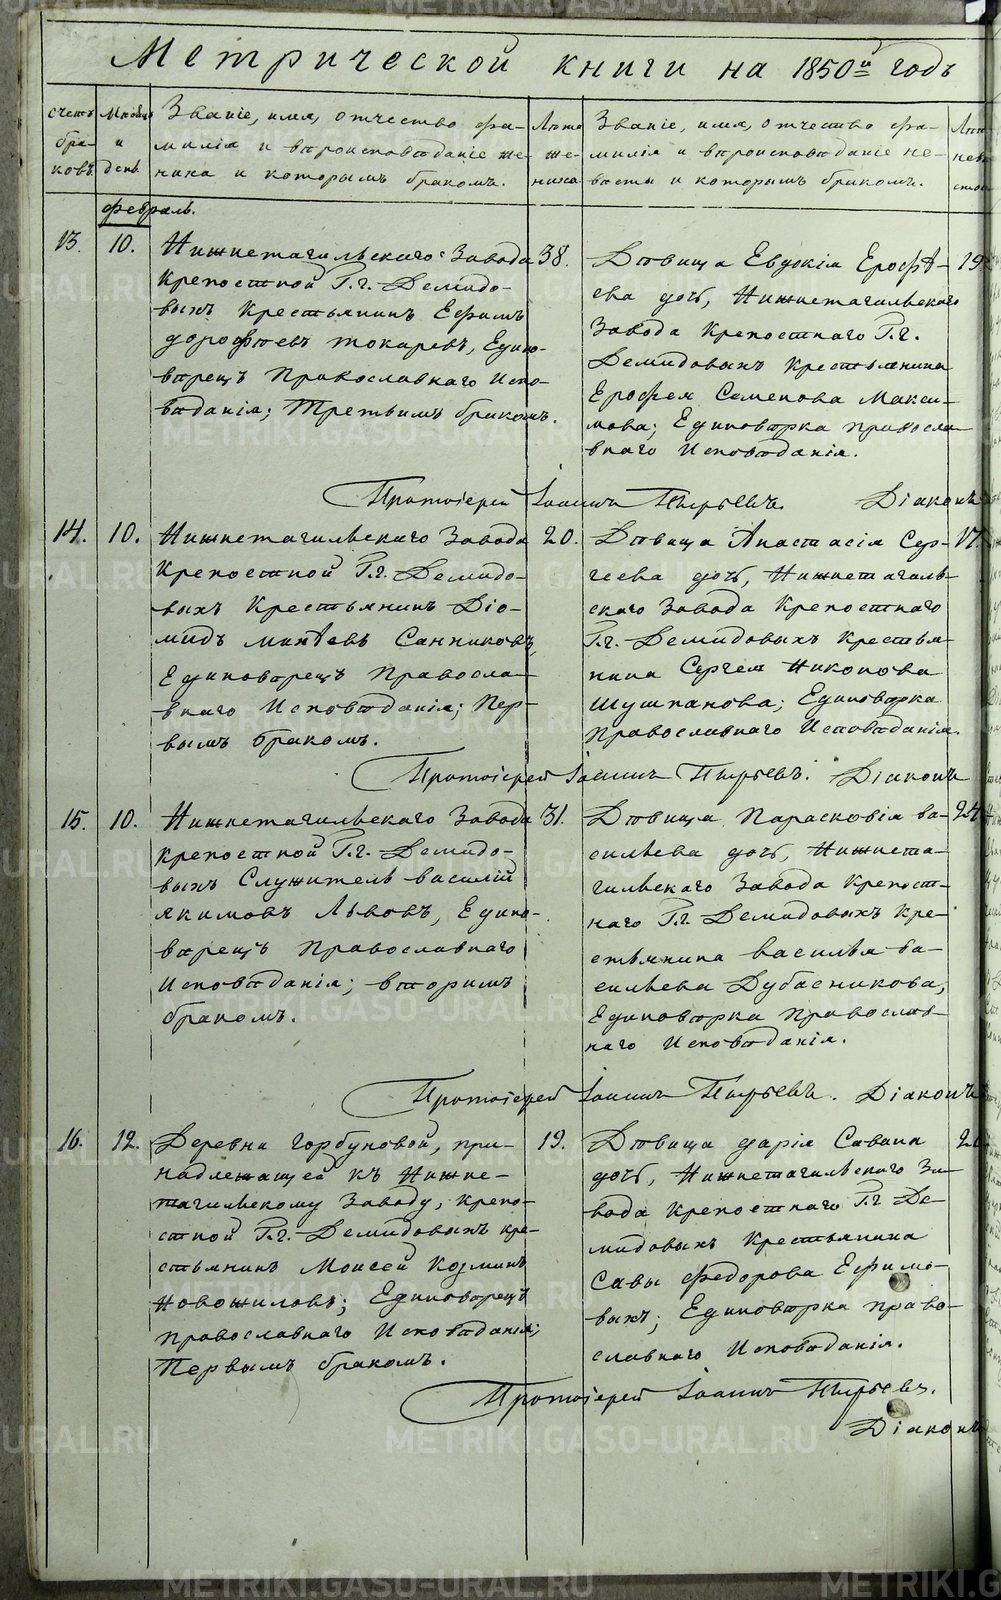 Метрической книги на 1850й годъ
счетъ бра- ковъ.
Мѣсяцъ и день
Званіе, имя, отчество фа-
милія и вѣроисповѣданіе же-
ниха и которымъ бракомъ.
Лѣта же- ниха
Званіе, имя, отчество фа-
милія и вѣроисповѣданіе не-
вѣсты и которымъ бракомъ.
Лѣта невѣ
Февраль.
13. 10.
Нижнетагильскаго Завода
Крѣпостной Г.г. Демидо-
выхъ Крестьянинъ Ефимъ
дорофѣевъ токаревъ, Едино-
вѣрецъ Православнаго Испо-
вѣданія; Третьимъ бракомъ.
38.
Дѣвица Евдокія Ерофѣ-
ева дочь, Нижнетагильскаго
Завода Крѣпостнаго Г.г.
Демидовыхъ Крестьянина
Ерофея Семенова Макси-
мова; Единовѣрка правосла-
внаго Исповѣданія.
19.
Протоіерей Іоаннъ Пырьевъ. Діаконъ
14. 10.
Нижнетагильскаго Завода
Крѣпостной Г.г. Демидо-
выхъ Крестьянинъ Діо-
мидъ минѣевъ Санниковъ,
Единовѣрецъ Правосла-
внаго Исповѣданія; Пер-
вымъ бракомъ.
20.
Дѣвица Анастасія Сер-
геева дочь, Нижнетагиль-
скаго Завода Крѣпостнаго
Г.г. Демидовыхъ Крестья-
нина Сергея Никонова
Шушпанова; Единовѣрка
Православнаго Исповѣданія.
17.
Протоіерей Іоаннъ Пырьевъ. Діаконъ
15. 10.
Нижнетагильскаго Завода
Крѣпостной Г.г. Демидо-
выхъ Служитель василій
якимовъ Львовъ, Едино-
вѣрецъ Православнаго
Исповѣданія; вторымъ
бракомъ.
31.
Дѣвица Парасковія ва-
сильева дочь, Нижнета-
гильскаго Завода Крѣпост-
наго Г.г. Демидовыхъ Кре-
стьянина василья ва-
сильева Дубасникова,
Единовѣрка Православ-
наго Исповѣданія.
24
Протоіерей Іоаннъ Пырьевъ. Діаконъ
16. 12.
Деревни горбуновой, при-
надлежащей къ Нижне-
тагильскому Заводу, крѣпо-
стной Г.г. Демидовыхъ кре-
стьянинъ Моисей Козминъ
Новожиловъ; Единовѣрецъ
православнаго Исповѣданія;
Первымъ бракомъ.
19.
Дѣвица дарія Савина
дочь, Нижнетагильскаго За-
вода Крѣпостнаго Г.г. Де-
мидовыхъ Крестьянина
Савы Федорова Ефимо-
выхъ; Единовѣрка право-
славнаго Исповѣданія.
Протоіерей Іоаннъ Пырьевъ.
Діаконъ
METRIKI.GASO-URAL.RU